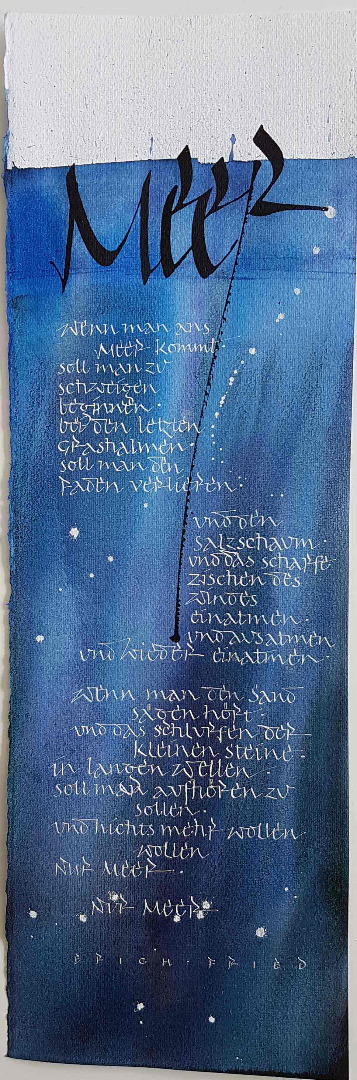 Meer
wenn man ans
Meer kommt
soll man zu
schweigen
beginnen
bei den letzten
Grashalmen
soll man den
Faden verlieren
und den
Salzschaum
und das scharfe
Zischen des
Windes
einatmen
und ausatmen
und wieder einatmen
Wenn man den Sand
sägen hört
und das Schlurfen der
kleinen Steine
in langen Wellen
soll man aufhören zu
sollen
und nichts mehr wollen
wollen
Nur Meer
Nur Meer
ERICH FRIED